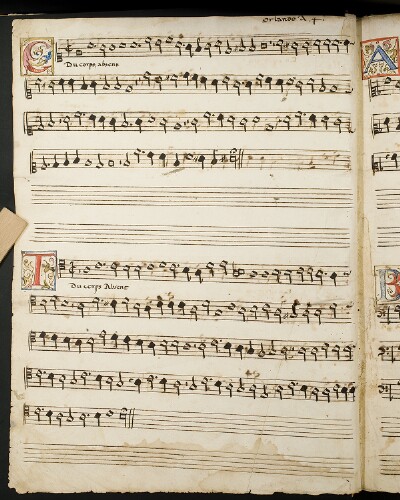 Orlando A. 4.
C
A
Du corps absent
T
B
Du corps Absent